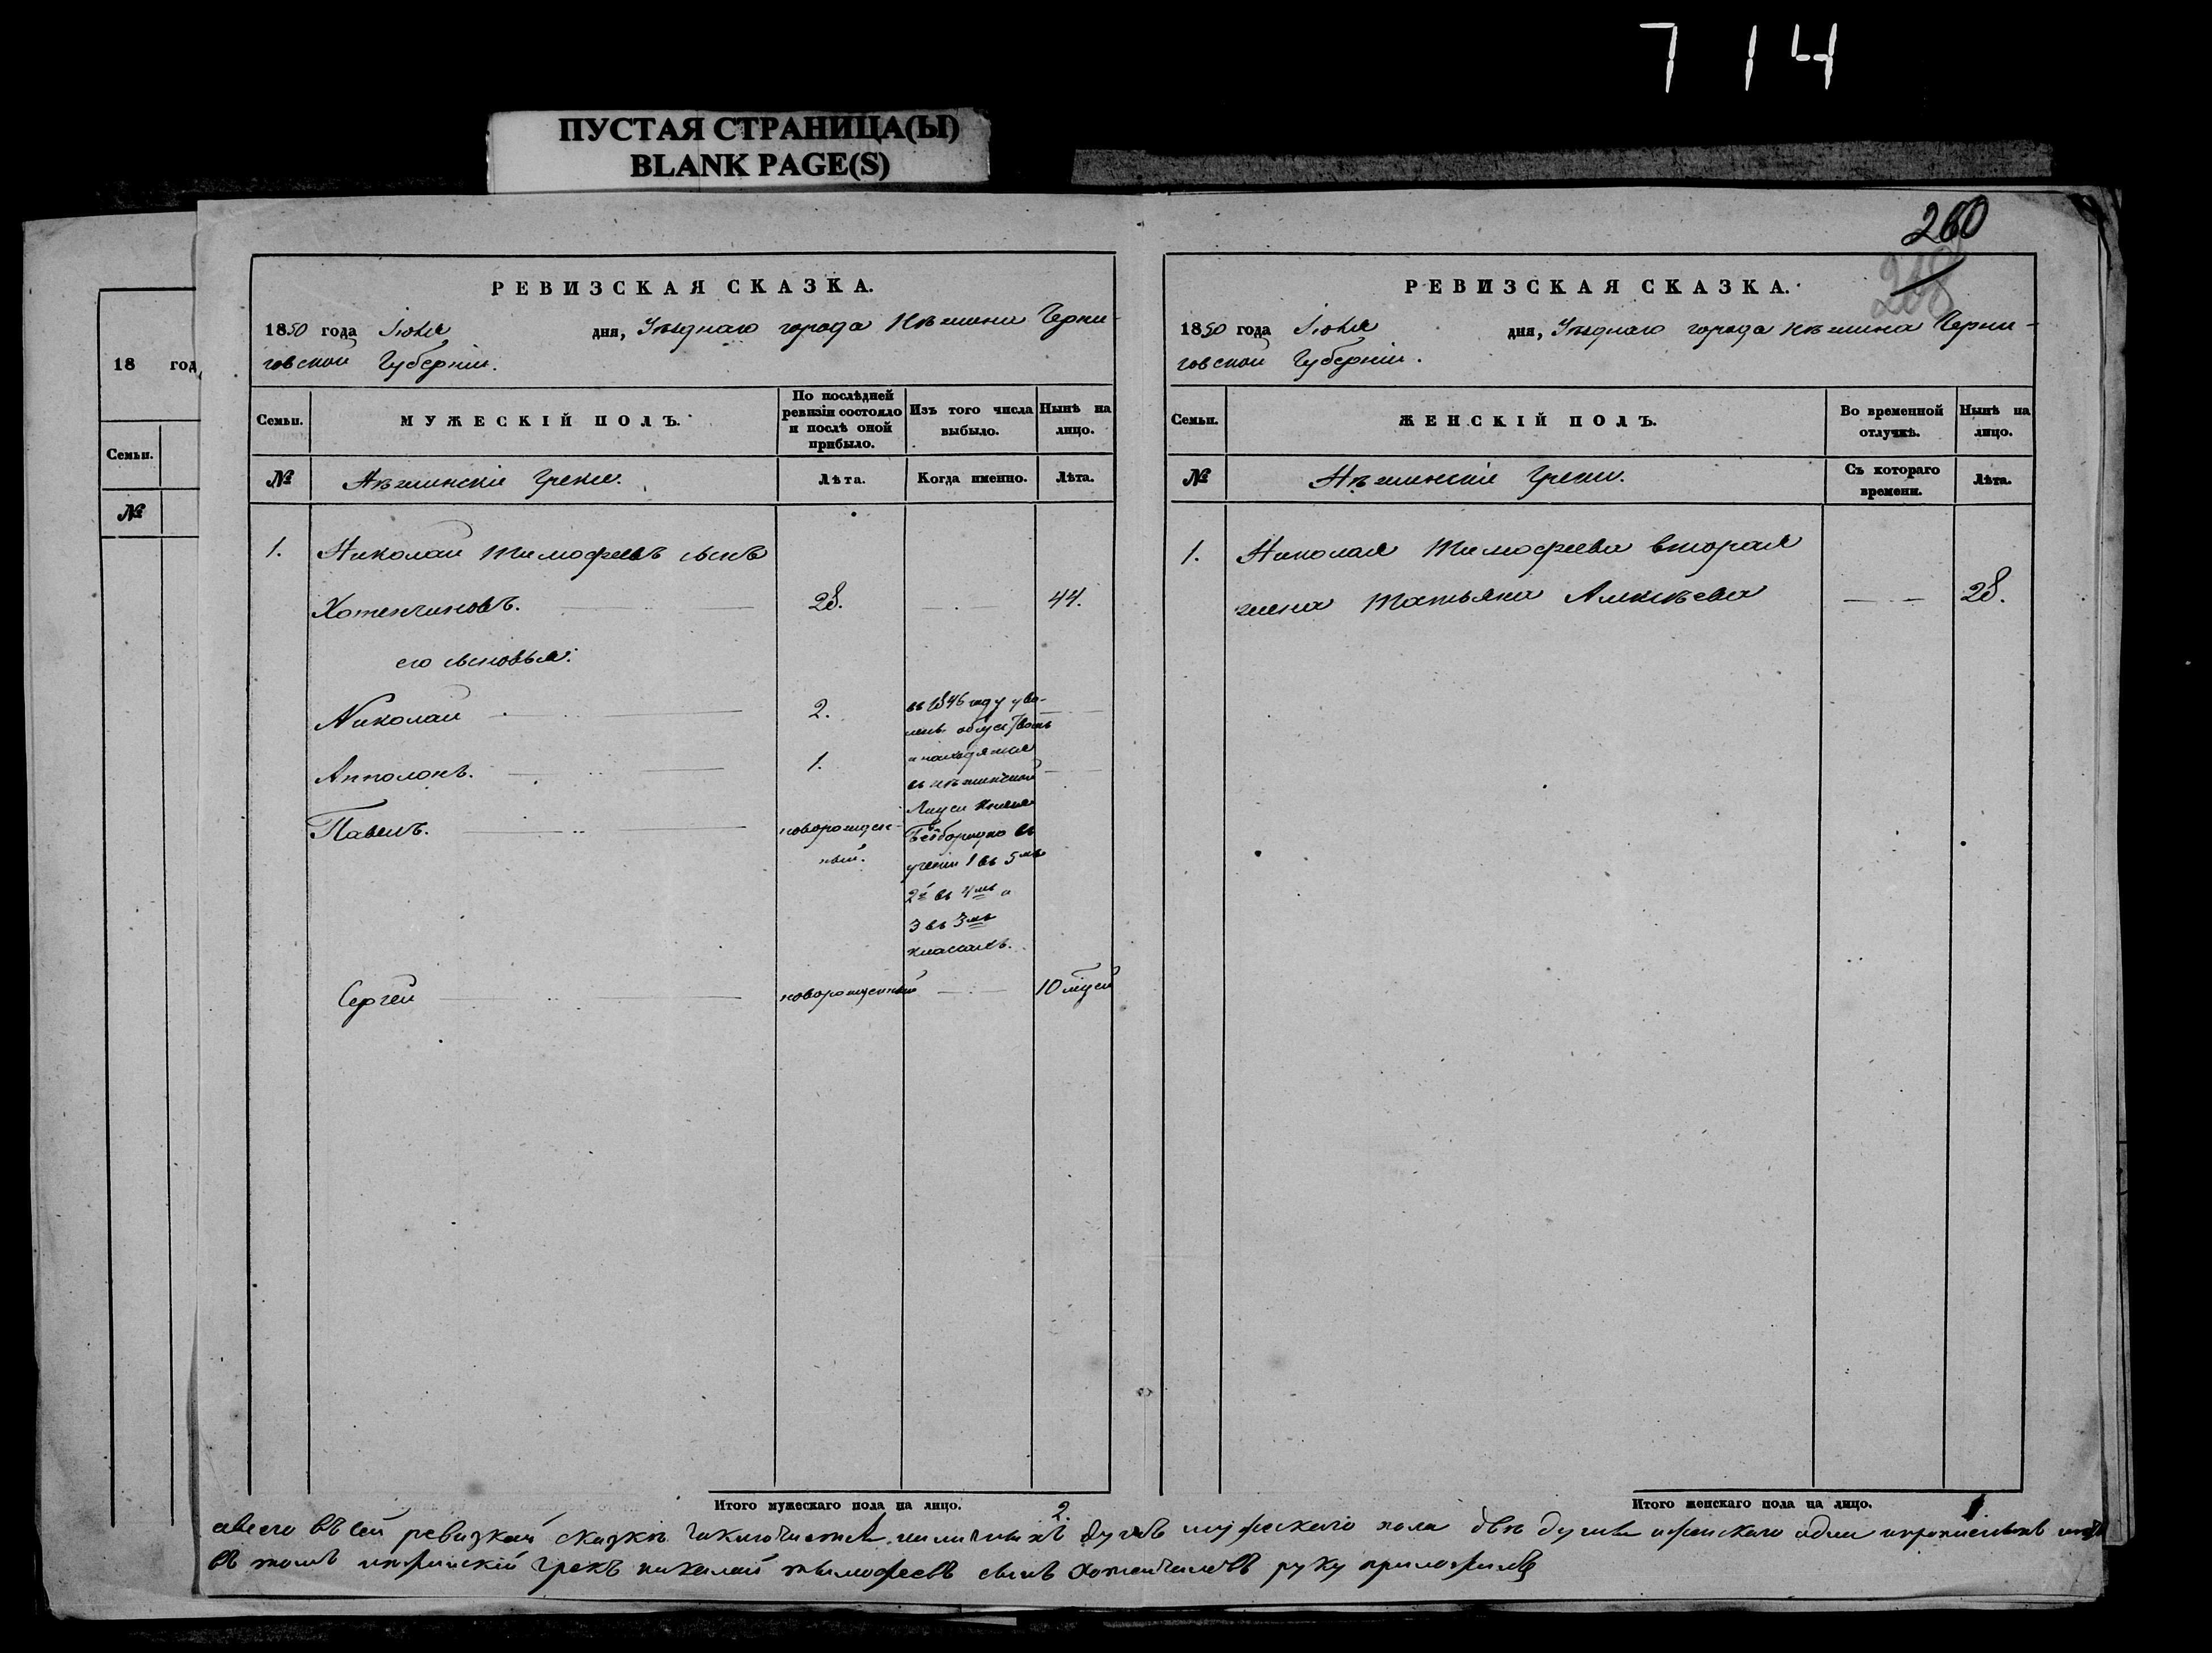 7 14
ПУСТАЯ СТРАНИЦА(Ы)
BLANK PAGE(S)
260
268
18 год
Семьи.
№
РЕВИЗСКАЯ СКАЗКА.
1850 года Іюля дня, Уѣзднаго города Нѣжина Черни-
говской Губерніи.
Семьи.
МУЖЕСКІЙ ПОЛЪ.
По послѣдней
ревизіи состояло
и послѣ оной
прибыло.
Изъ того числа
выбыло.
Нынѣ на
лицо.
№
Нѣжинскіе Греки.
Лѣта.
Когда именно.
Лѣта.
1. Николай Тимофеевъ сынъ
Хотенчиновъ. 28. 44.
его сыновья:
Николай 2.
Апполонъ. 1.
Павелъ. новорожден-
ный.
въ 1846 году уво-
лены обществомъ
и находятся
въ Нѣжинской
Лицеи Князя
Безбородко въ
ученіи 1 въ 5мъ
2й въ 4мъ и
3 въ 3мъ
классахъ.
Сергей новорожденный 10 мѣсей
Итого мужескаго пола на лицо. 2.
РЕВИЗСКАЯ СКАЗКА.
1850 года Іюля дня, Уѣзднаго города Нѣжина Черни-
говской Губерніи.
Семьи.
ЖЕНСКІЙ ПОЛЪ.
Во временной
отлучкѣ.
Нынѣ на
лицо.
№
Нѣжинскіе Греки.
Съ котораго
времени.
Лѣта.
1. Николая Тимофеева вторая
жена Татьяна Алексѣева 28.
Итого женскаго пола на лицо. 1
всего въ сей ревизкой сказкѣ наличныхъ душъ мужескаго пола двѣ души женскаго одна
въ томъ нежинскій грекъ николай тымофеевъ сынъ хотенчиновъ руку приложилъ